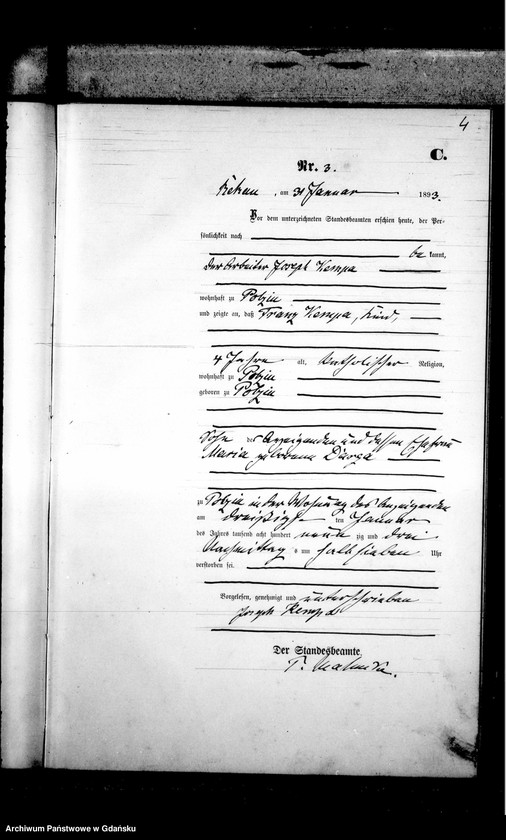 4
C.
Nr. 3.
Rekau, am 31 Januar 1893.
Vor dem unterzeichneten Standesbeamten erschien heute, der Per-
sönlichkeit nach
be kannt,
der Arbeiter Joseph Kempa
wohnhaft zu Polzin
und zeigte an, daß Franz Kempa, Kind,
4 Jahre alt, katholischer Religion,
wohnhaft zu Polzin
geboren zu Polzin
Sohn des Anzeigenden und dessen Ehefrau
Maria geborene
zu Polzin in der Wohnung des Anzeigenden
am dreißigsten Januar
des Jahres tausend acht hundert neun zig und drei
Nachmittag s um halb sieben Uhr
verstorben sei.
Vorgelesen, genehmigt und unterschrieben
Joseph Kempa
Der Standesbeamte.
Archiwum Państwowe w Gdańsku